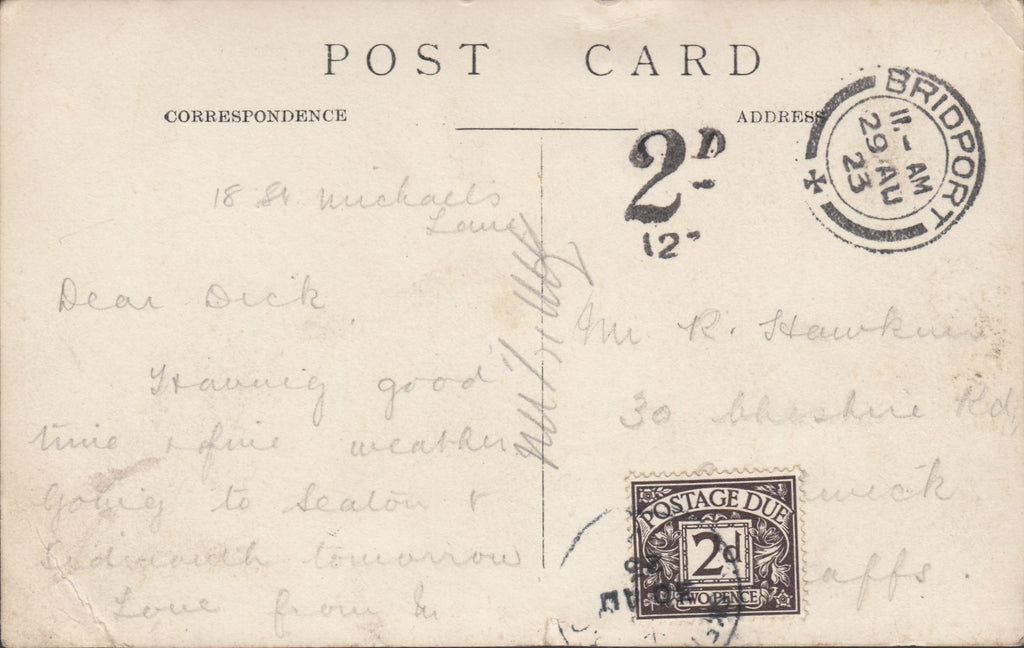 POST CARD
CORRESPONDENCE
ADDRESS
BRIDPORT
11.- AM
29 AU
23
2D
12-
18 St Michael's
Lane
Dear Dick
Having good
time & fine weather
Going to Seaton &
Sidmouth tomorrow
Love from
Mr R. Hawkins
30 Cheshire Rd,
wick
affs.
POSTAGE DUE
2d
TWO PENCE